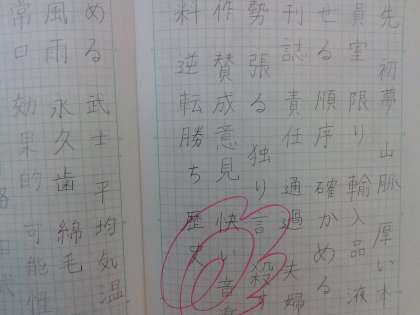 先 初夢 山脈 厚い本
員室 限り 輸入品 液
せる 順序 確かめる
刊誌 責任 通過 夫婦
勢 張る 独り言 殺す
作 賛成意見 快い音
料 逆転勝ち 歴史
める 武士 平均気温
風雨 永久歯 綿毛
常口 効果的 可能性